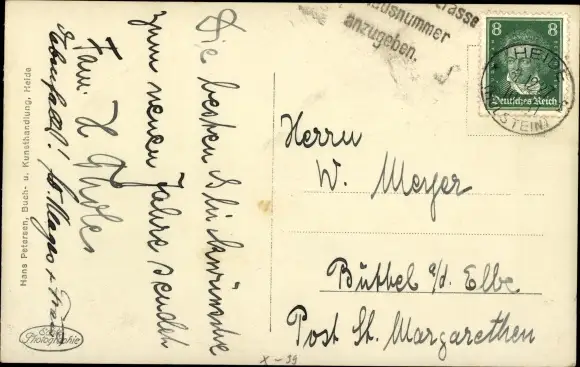 Die besten Glückwünsche
zum neuen Jahre sendet
Fam. H
Ebenfalls!
Hans Petersen, Buch- u. Kunsthandlung, Heide
Echte
Photographie
Hausnummer
anzugeben.
8 8
Deutsches Reich
HEIDE
(HOLSTEIN)
Herrn
W. Meyer
Büttel a/d. Elbe
Post St. Margarethen
X-39